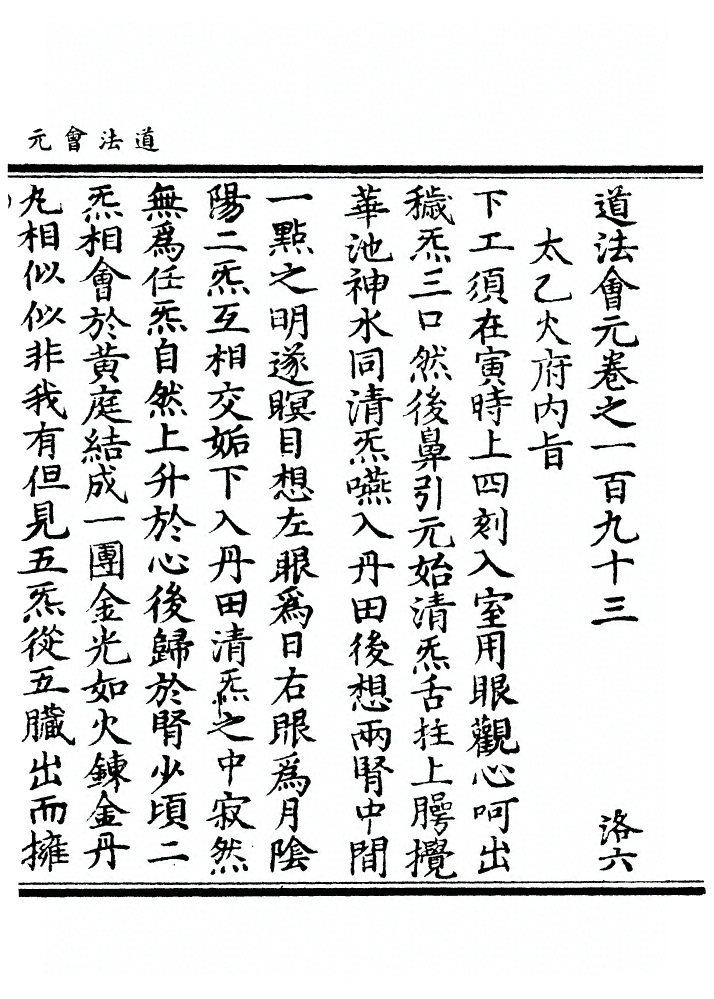 道法會元
道法會元卷之一百九十三 洛六
太乙火府内旨
下工須在寅時上四刻入室用眼觀心呵出
穢炁三口然後鼻引元始清炁舌拄上腭攪
華池神水同清炁嚥入丹田後想兩腎中間
一點之明遂瞑目想左眼爲日右眼爲月陰
陽二炁互相交姤下入丹田清炁之中寂然
無爲任炁自然上升於心後歸於腎少頃二
炁相會於黄庭結成一團金光如火鍊金丹
丸相似似非我有但見五炁從五臟出而擁